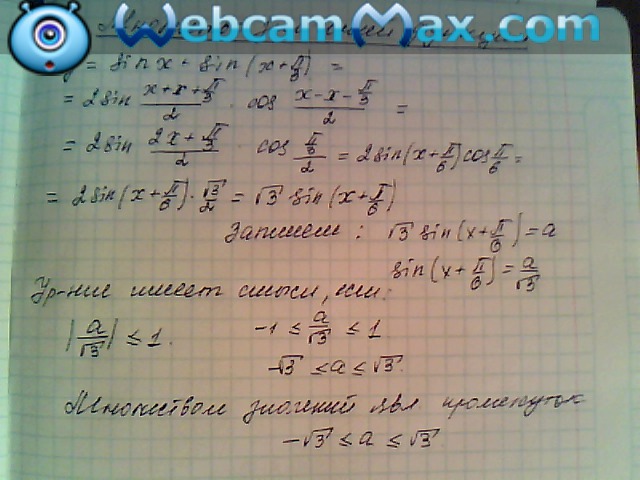 WebcamMax.com
y = sin x + sin (x + π/3) =
= 2 sin (x + x + π/3)/2 · cos (x - x - π/3)/2 =
= 2 sin (2x + π/3)/2 cos (π/3)/2 = 2 sin (x + π/6) cos π/6 =
= 2 sin (x + π/6) · √3/2 = √3 sin (x + π/6)
Запишем : √3 sin (x + π/6) = a
sin (x + π/6) = a/√3
Ур-ние имеет смысл, если:
|a/√3| ≤ 1. -1 ≤ a/√3 ≤ 1
-√3 ≤ a ≤ √3.
Множеством значений явл промежуток
-√3 ≤ a ≤ √3